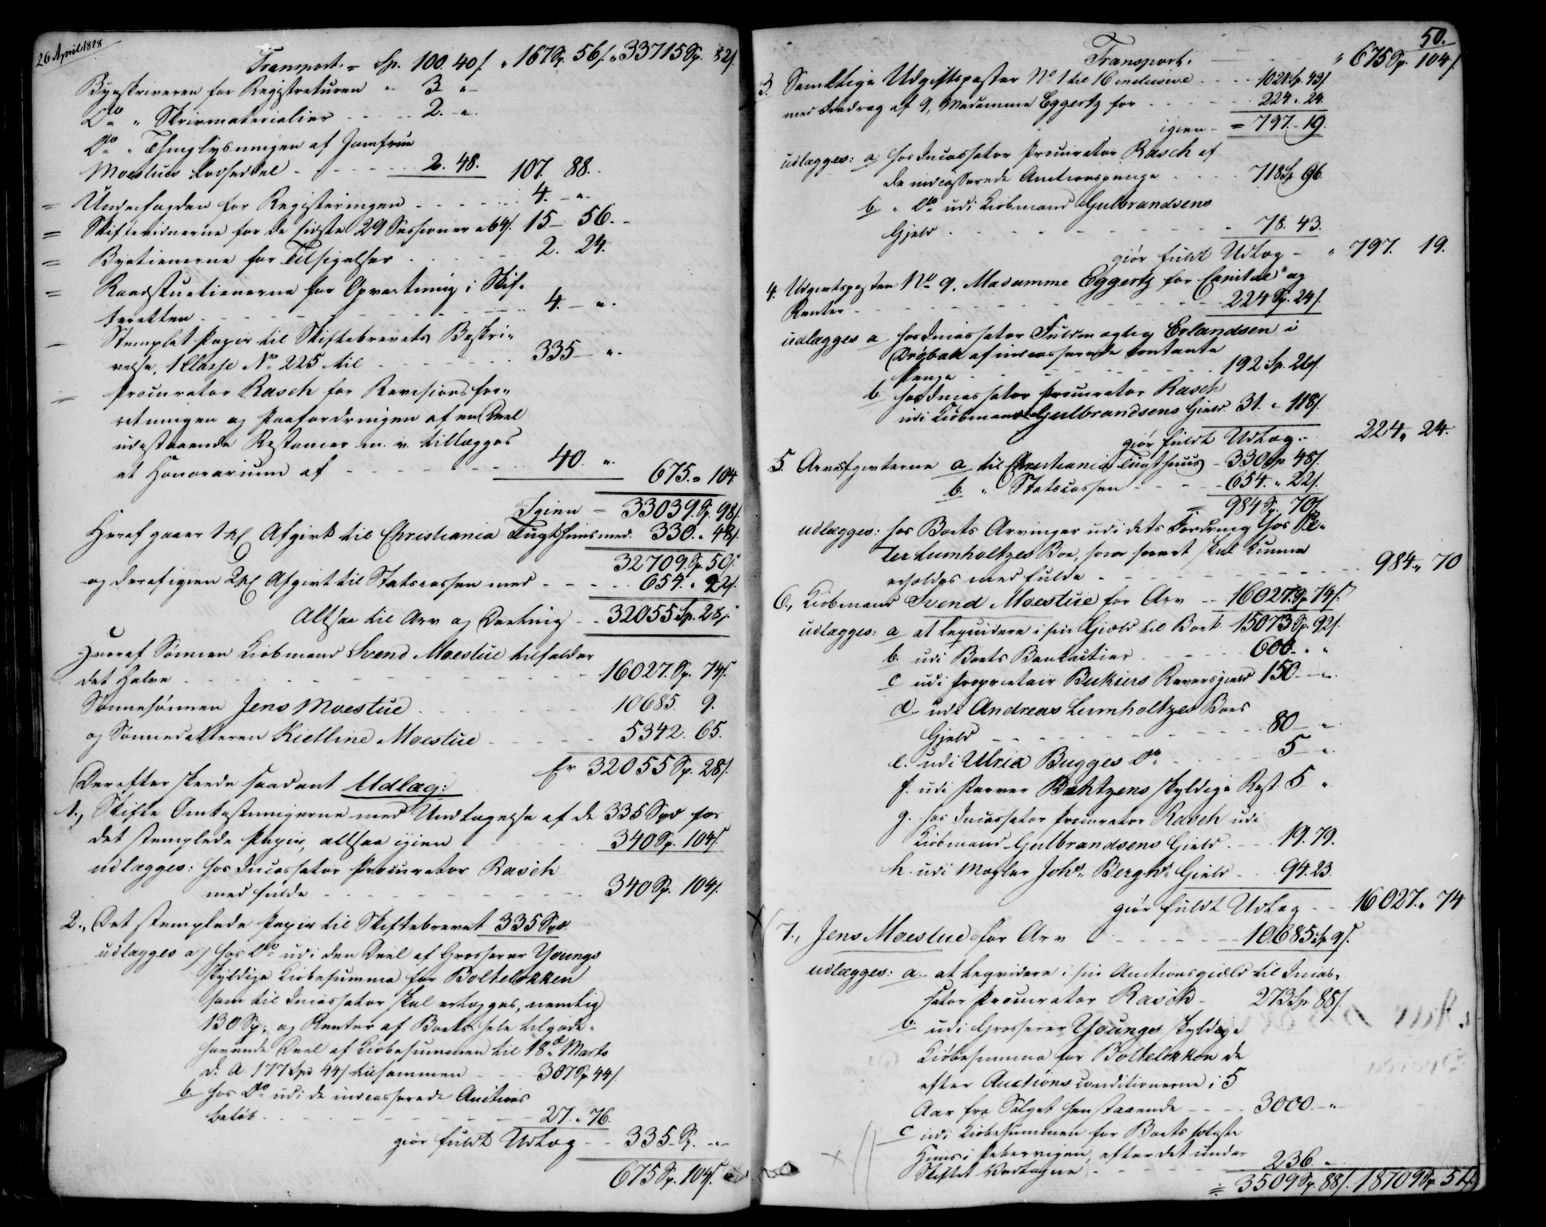 26 April 1828
Transport. = Sp. 100. 40 s. " 167 Sp. 56 s. " 33715 Sp. 82 s
Byeskriveren for Registreturen " 3 "
Do " Skrivmaterialier - - - 2. - ".
Do " Thinglysningen af Jomfrue
Moestues Lodseddel - - - - 2. 48. 107. 88.
= Underfogden for Registeringen - - - - 4. - ".
= Skiftevidnerne for de sidste 29 Sessioner a 64 s. 15 - 56. -
= Byetienerne for Tilsigelser - - - 2. 24.
= Raadstuetienerne for Opvartning i Skif-
teretten - - - - - - 4. - ".
- Stemplet Papir til Skiftebrevets Beskri-
velse, 1 Classe No 225 til - - - - 335 - ".
- Procurator Rasch for Revisions for-
retningen og Paafordringen af en Deel
udestaaende Restancer m. v. tillægges
et Honorarium af - - - - 40. ". 675. " 104
Igien - 33039 Sp. 98 s.
Heraf gaaer 1 pCt Afgivt til Christiania Tugthuus med. 330. " 48 s.
32709 Sp. 50 s.
og deraf igien 2 pCt Afgivt til Statscassen med - - - - 654. " 22 s.
Altsaa til Arv og Deeling - - 32055 Sp. 28 s.
Hvoraf Sønnen Kiøbmand Svend Moestue tilfalder
det Halve - - - - - 16027 Sp. 74 s.
Sønnesønnen Jens Moestue - - - 10685. 9.
og Sønnedatteren Kielline Moestue - - - - 5342. 65.
Er 32055 Sp. 28 s.
Derefter skeede saadant Udlæg:
1., Skifte Omkostningerne med Undtagelse af de 335 Spd for
det stemplede Papir, altsaa igien - - - 340 Sp. 104 s.
udlægges: hos Incassator Procurator Rasch
med fulde - - - - - - 340 Sp. 104 s.
2., Det stemplede Papir til Skiftebrevet 335 Spd.
udlægges a) hos Do udi den Deel af Grosserer Youngs
skyldige Kiøbesumma for Bolteløkken
som til Incassator skal erlægges, nemlig
130 Sp. og Renter af Boets hele tilgode-
havende Deel af Kiøbesummen til 18de Marts
d. A. 177 Spd 44 s tilsammen - - 307 Sp 44 s.
b hos Do udi de indcasserede Auctions
beløb - - - - - 27. " 76.
giør fuldt Udlæg - - 335 Sp. - "
675 Sp. 104 s.
50.
Transport. - - " 675 Sp. 104 s
3. Samtlige Udgiftsposter No 1 til 16 inclusive - - - 1021 Sp. 43 s.
med Fradrag af 9, Madamme Eggertz for - - - - 224. " 24.
igien - = 797. - 19.
udlægges: a hos Incassator Procurator Rasch af
de indcasserede Auctionspenge - - - 718 Sp. 96.
b. " Do udi Kiøbmand Gulbrandsens
Gjeld - - - - - - 78. 43.
giør fuldt Udlæg - " 797. 19.
4. Udgiftsposten No 9. Madamme Eggertz for Capital og
Renter - - - - - - 224 Sp. 24 s.
udlægges a hos Incassator Fuldmægtig Erlandsen i
Drøbak af indcasserede contante
Penge - - - - - 192 Sp. 26 s.
b hos Incassator Procurator Rasch
udi Kiøbmand Gulbrandsens Gield 31. " 118 s.
giør fuldt Udlæg. - 224. " 24.
5. Arveafgivterne a til Christiania Tugthuus - 330 Sp. 48 s.
b. " Statscassen - - - - 654. " 22 s.
984 Sp. 70 s.
udlægges: hos Boets Arvinger udi dets Fordring hos Pe-
ter Lumholtzes Boe, som forud skal kunne
erholdes med fulde - - - - - 984. " 70
6., Kiøbmand Svend Moestue for Arv - - 16027 Sp. 74 s.
udlægges: a at liquidere i sin Gield til Boet 15073 Sp. 92 s.
b. udi Boets Bankactier - - - - 600. " "
c udi Proprietair Bukiers Reversgield 150. - ".
d. udi Andreas Lumholtzes Boes
Gjeld - - - - - - 80 - ".
e. udi Ulrich Bugges Do - - - - 5 - ".
f. udi Farver Bakhtzens skyldige Rest 5 ".
g. hos Incassator Procurator Rasch udi
Kiøbmand Gulbrandsens Gield - - 19. 79.
h. udi Mægler Johs. Berghs Gield - - 94. 23
giør fuldt Udlæg - - 16027. " 74
7., Jens Moestue for Arv - - - - 10685 Sp. 9 s.
udlægges: a at liqvidere i sin Auctionsgield til Incas-
sator Procurator Rasch - 273 Sp. 85 s.
b udi Grosserer Youngs skyldige
Kiøbesumma for Bolteløkken de
efter Auctionsconditionerne i 5
Aar fra Salget henstaaende - - - 3000 - ".
c udi Kiøbesummen for Boets solgte
Huus i Pebervigen, efter det under
Skiftet Vedtagne - - - - 236 - "
÷ 3509 Sp. 88 s. 18709 Sp. 51 s.